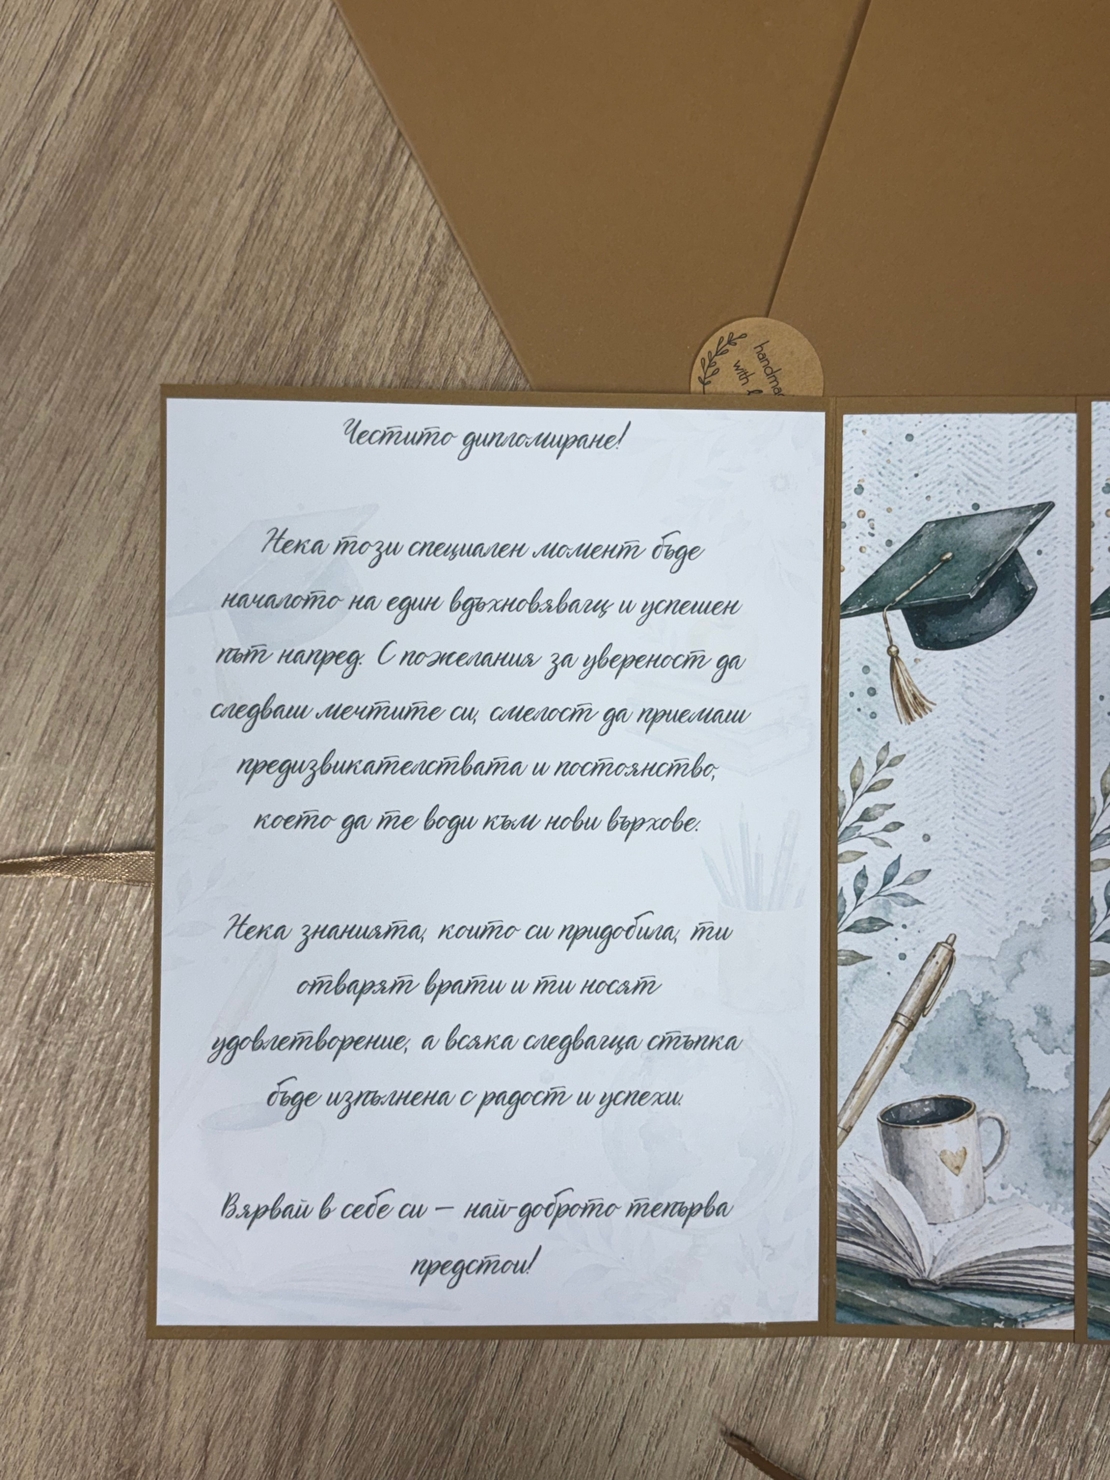 handma
with
Честито дипломиране!
Нека този специален момент бъде
началото на един вдъхновяващ и успешен
път напред. С пожелания за увереност да
следваш мечтите си, смелост да приемаш
предизвикателствата и постоянство,
което да те води към нови върхове.
Нека знанията, които си придобила, ти
отварят врати и ти носят
удовлетворение, а всяка следваща стъпка
бъде изпълнена с радост и успехи.
Вярвай в себе си – най-доброто тепърва
предстои!